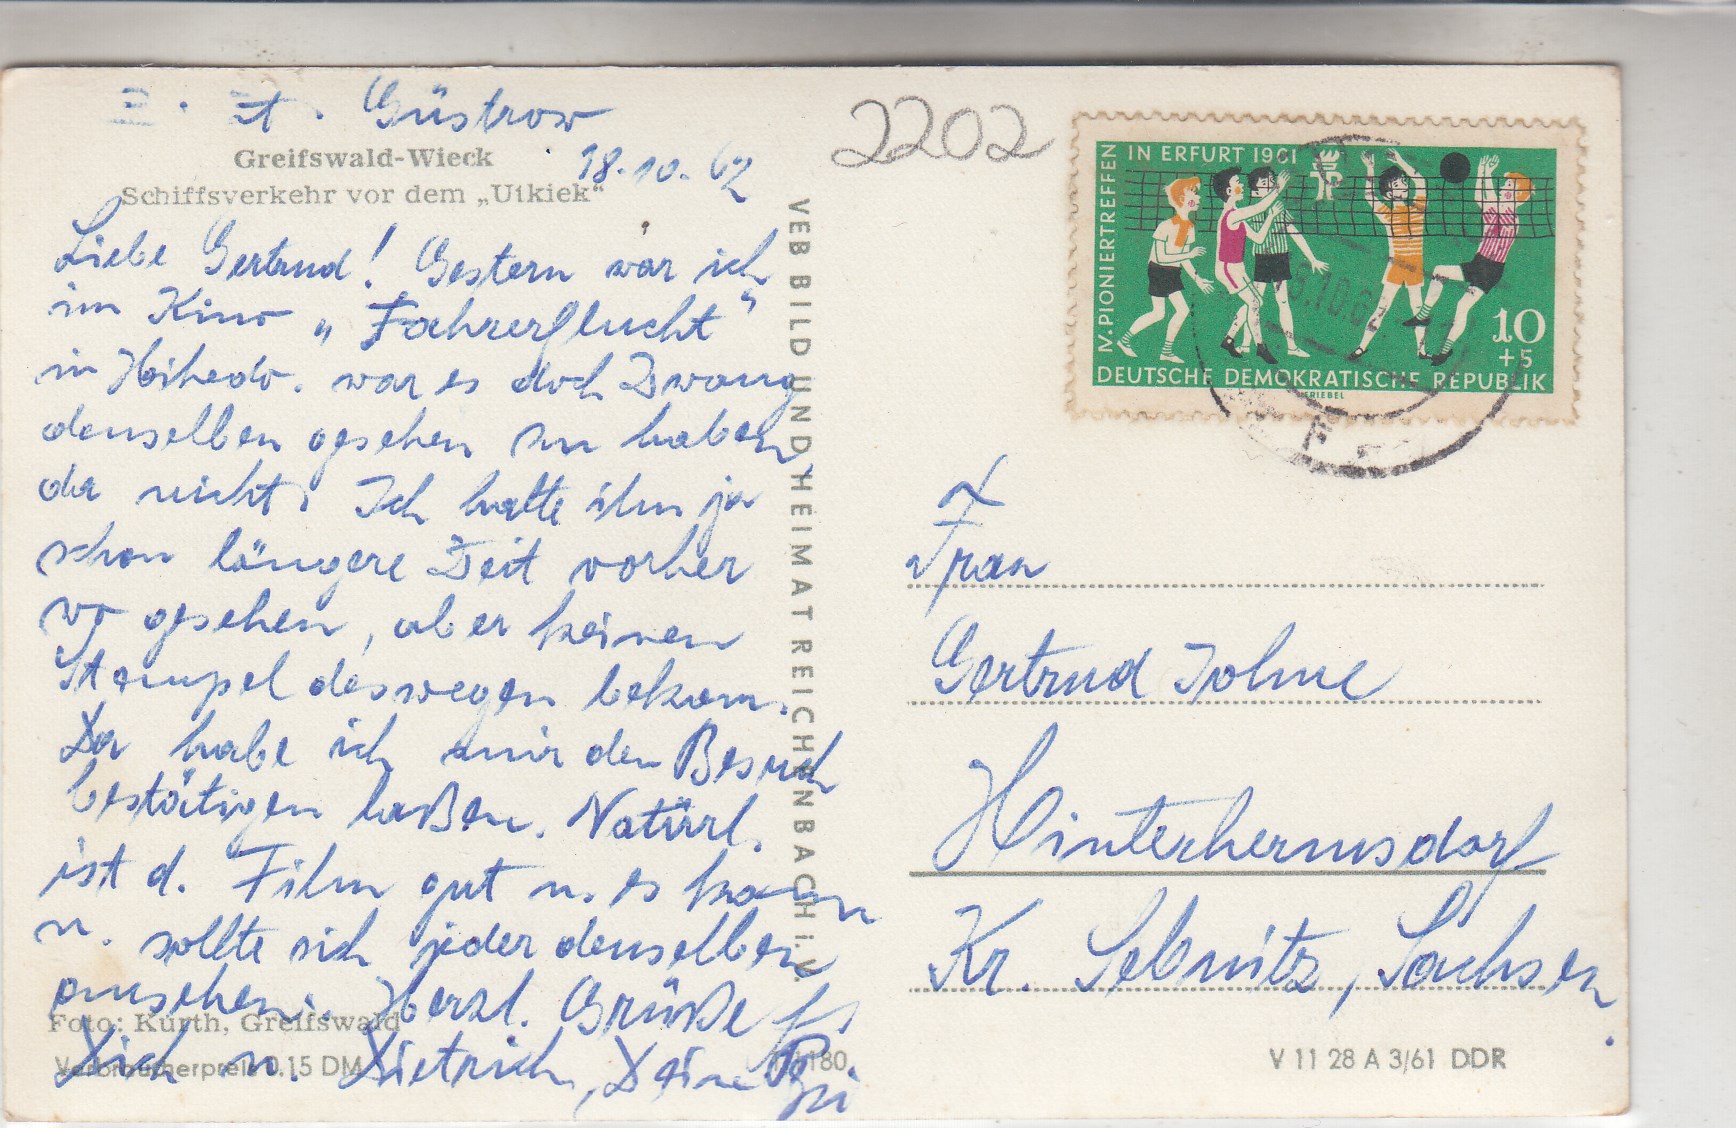 Z. Zt. Güstrow
Greifswald-Wieck
18.10.62
Schiffsverkehr vor dem „Utkiek“
Liebe Gertrud! Gestern war ich
im Kino „Fahrerflucht“
in war es doch Zwang
denselben gesehen zu haben,
oder nicht. Ich hatte ihn ja
schon längere Zeit vorher
wo gesehen, aber keinen
Stempel deswegen bekom.
Da habe ich mir den Besuch
bestätigen laßen. Natürl.
ist d. Film gut u. es kann
u. sollte sich jeder denselben
ansehen. Herzl. Grüße für
Dich u. Dietrich, Deine
Foto: Kurth, Greifswald
Verbraucherpreis 0.15 DM
VEB BILD UND HEIMAT REICHENBACH i. V.
2202
IV. PIONIERTREFFEN IN ERFURT 1961
10
+5
DEUTSCHE DEMOKRATISCHE REPUBLIK
.10.6
Frau
Gertrud
Hinterhermsdorf
Kr. Sebnitz, Sachsen.
V 11 28 A 3/61 DDR